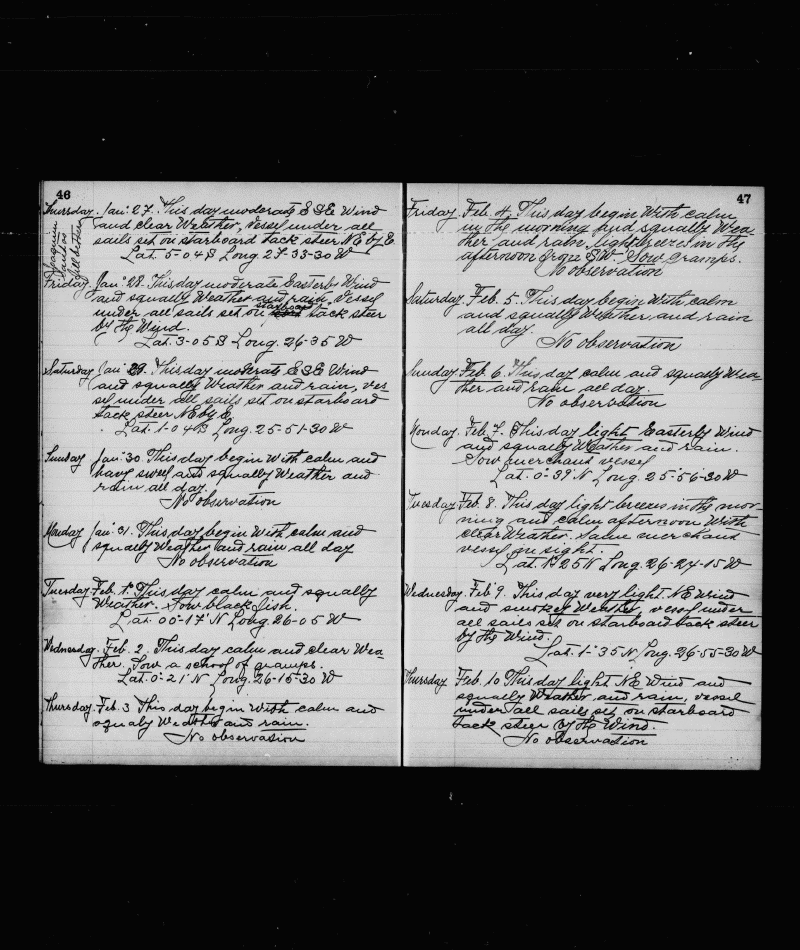 46
Thursday. Jan. 27. This day moderate ESE Wind
and clear Weather, Vessel under all
sails set on starboard tack steer NE by E.
Lat. 5-04 S Long. 27-33-30 W
Joaquim
Santos
fell better
Friday. Jan. 28. This day moderate Easterly Wind
and squally Weather and rain, Vessel
starboard
under all sails set on tack steer
by the Wind.
Lat. 3-05 S Long. 26-35 W
Saturday Jan. 29. This day moderate ESE Wind
and squally Weather and rain, ves
sel under all sails set on starboard
tack steer NE by E.
Lat. 1-04 S Long. 25-51-30 W
Sunday Jan. 30. This day begin With calm and
havy swell and squally Weather and
rain all day.
No observation
Monday Jan. 31. This day begin With calm and
squally Weather and rain all day
No observation
Tuesday Feb. 1st This day calm and squally
Weather. Sow black fish.
Lat. 00-17' N Long. 26-05 W
Wednesday. Feb. 2. This day calm and clear Wea-
ther. Sow a school of gramps.
Lat. 0-21' N Long. 26-15-30 W
Thursday. Feb. 3 This day begin With calm and
squaly Weather and rain.
No observation
47
Friday. Feb. 4. This day begin With calm
in the morning and squally Wea-
ther and rain, light breeze in the
afternoon from SW. Sow gramps.
No observation
Saturday. Feb. 5. This day begin With calm
and squally Weather and rain
all day.
No observation
Sunday Feb. 6. This day calm and squally Wea-
ther and rain all day.
No observation
Monday. Feb. 7. This day light Easterly Wind
and squally Weather and rain.
Sow merchant vessel
Lat. 0-39' N Long. 25-56-30 W
Tuesday Feb. 8. This day light breeze in the mor-
ning and calm afternoon With
clear Weather. Same merchant
vessel in sight.
Lat. 1-25 N Long. 26-24-15 W
Wednesday Feb 9. This day very light NE Wind
and smokey Weather, vessel under
all sails set on starboard tack steer
by the Wind.
Lat. 1-35 N Long. 26-55-30 W
Thursday Feb. 10 This day light NE Wind and
squally Weather and rain, vessel
under all sails set on starboard
tack steer by the Wind.
No observation